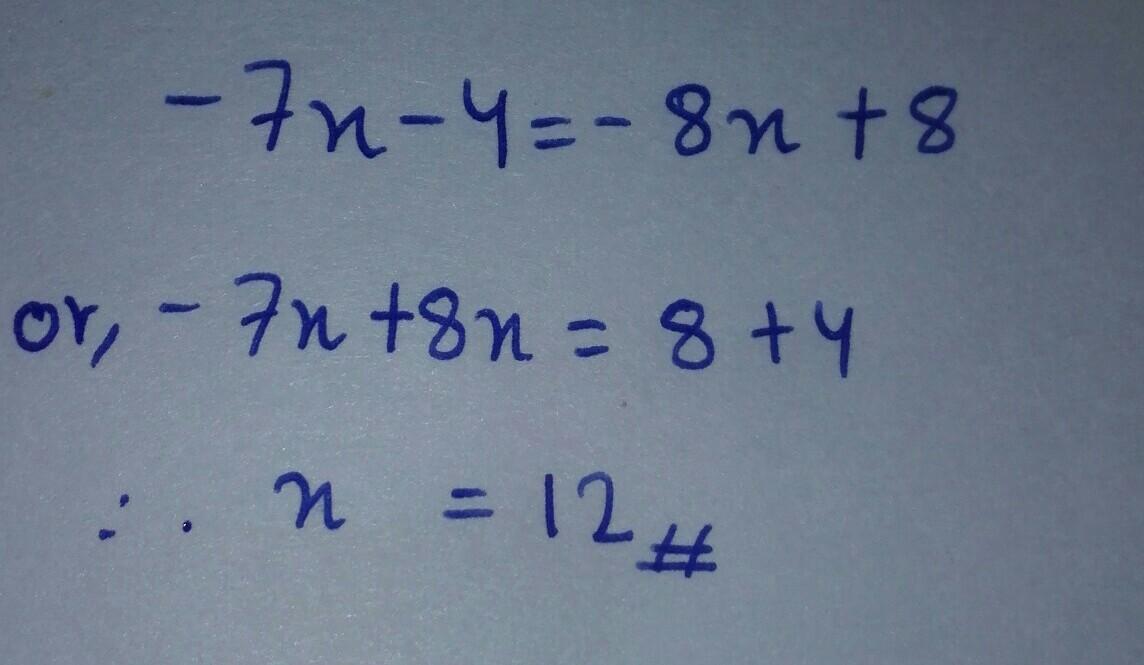 -7x-4=-8x+8
or, -7x+8x=8+4
∴ x = 12 #